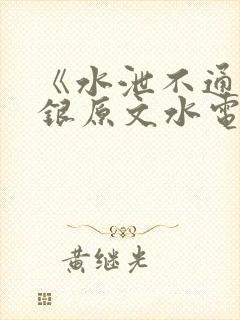 《水泄不通
銀原文水電
黄继光